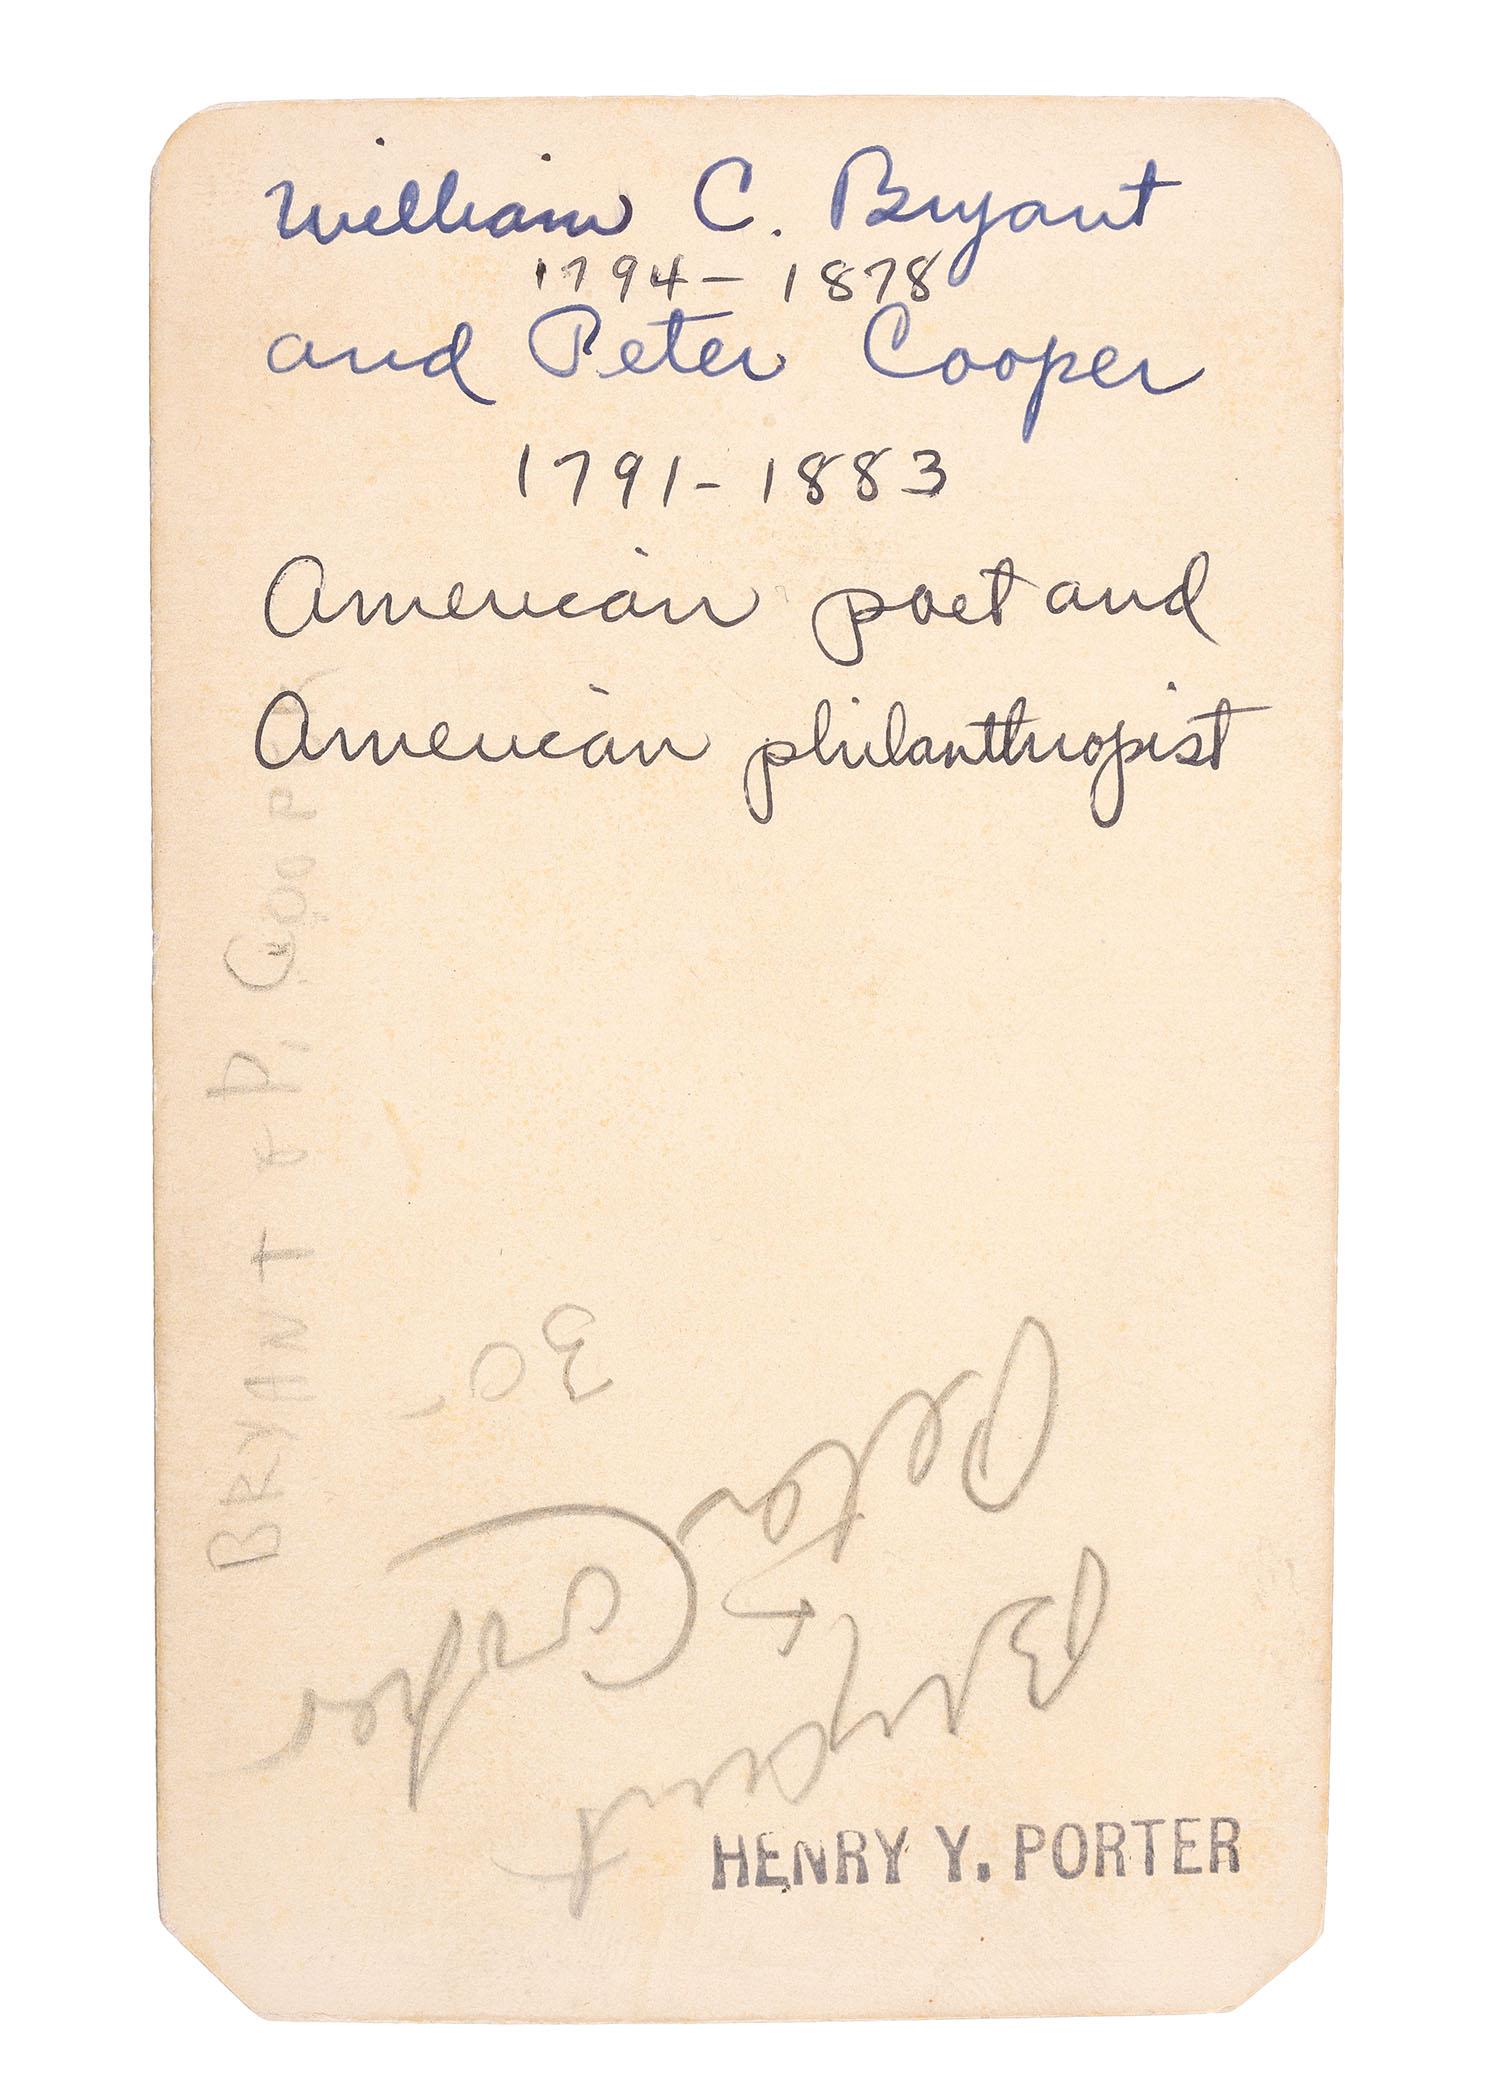 William C. Bryant
1794 - 1878
and Peter Cooper
1791 - 1883
American poet and
American philanthropist
BRYANT & P. COOPER
30-
Peter
Cooper
Bryant
HENRY Y. PORTER